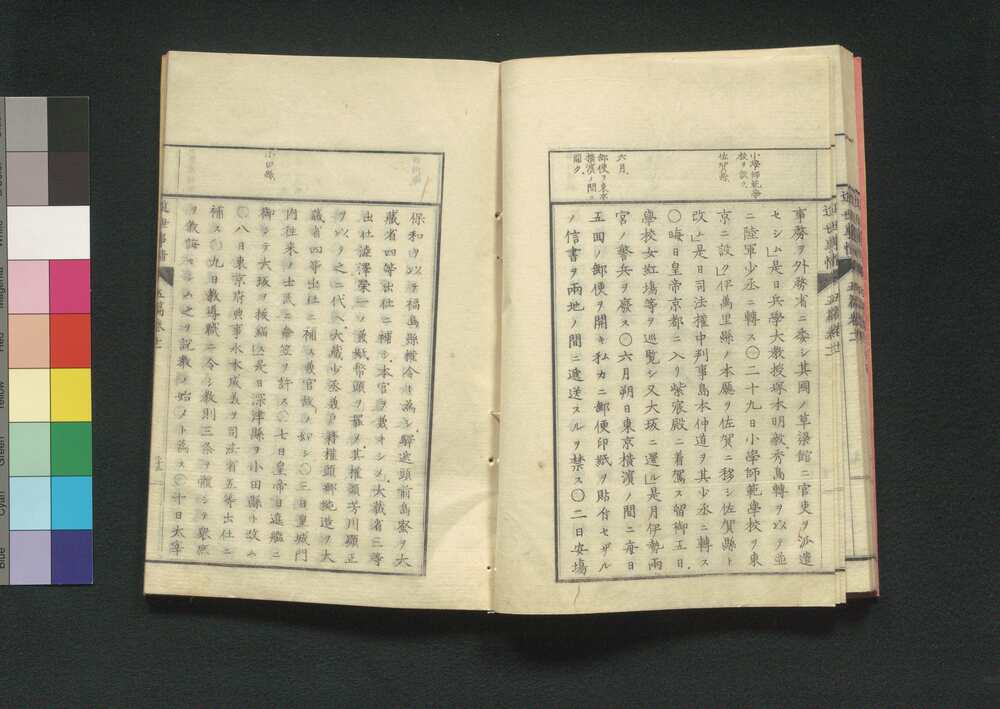 近世事情
五篇卷十一
小學師範學
校ヲ設ク
佐賀縣
六月
郵便ヲ東京
橫濱ノ間ニ
開ク
事務ヲ外務省ニ委シ其國ノ草梁館ニ官吏ヲ派遣
セシム」是日兵學大教授塚本明毅秀島轉ヲ以テ並
ニ陸軍少丞ニ轉ス〇二十九日小學師範學校ヲ東
京ニ設ク」伊萬里縣ノ本廳ヲ佐賀ニ移シ佐賀縣ト
改ム」是日司法權中判事島本仲道ヲ其少丞ニ轉ス
〇晦日皇帝京都ニ入リ紫宸殿ニ着駕ス留御五日
學校女紅場等ヲ巡覧シ又大坂ニ還ル」是月伊勢兩
宮ノ警兵ヲ廢ス〇六月朔日東京橫濱ノ間ニ每日
五回ノ郵便ヲ開キ私カニ郵便印紙ヲ貼付セザル
ノ信書ヲ兩地ノ間ニ遞送スルヲ禁ス〇二日安塲
小田縣
保和ヲ以テ福島縣權令ト爲シ驛遞頭前島密ヲ大
藏省四等出仕ニ補シ本官ヲ兼ネシメ大藏省三等
出仕澁澤榮一ノ兼紙幣頭ヲ罷メ其權頭芳川顯正
ヲ以テ之ニ代ヘ大藏少丞兼
藏省四等出仕ニ補ス兼官故ノ如シ〇三日皇城門
內往來ノ士民ニ傘笠ヲ許ス〇七日皇帝日進艦ニ
御シテ大坂ヲ拔錨ス」是日深津縣ヲ小田縣ト改ム
〇八日東京府典事水本成美ヲ司法省五等出仕ニ
補ス〇九日教導職ニ令シ教則三条ヲ
ヲ教誨セシム之ヲ說教ノ始メト爲ス〇十日太宰
近世事情
五篇卷十一